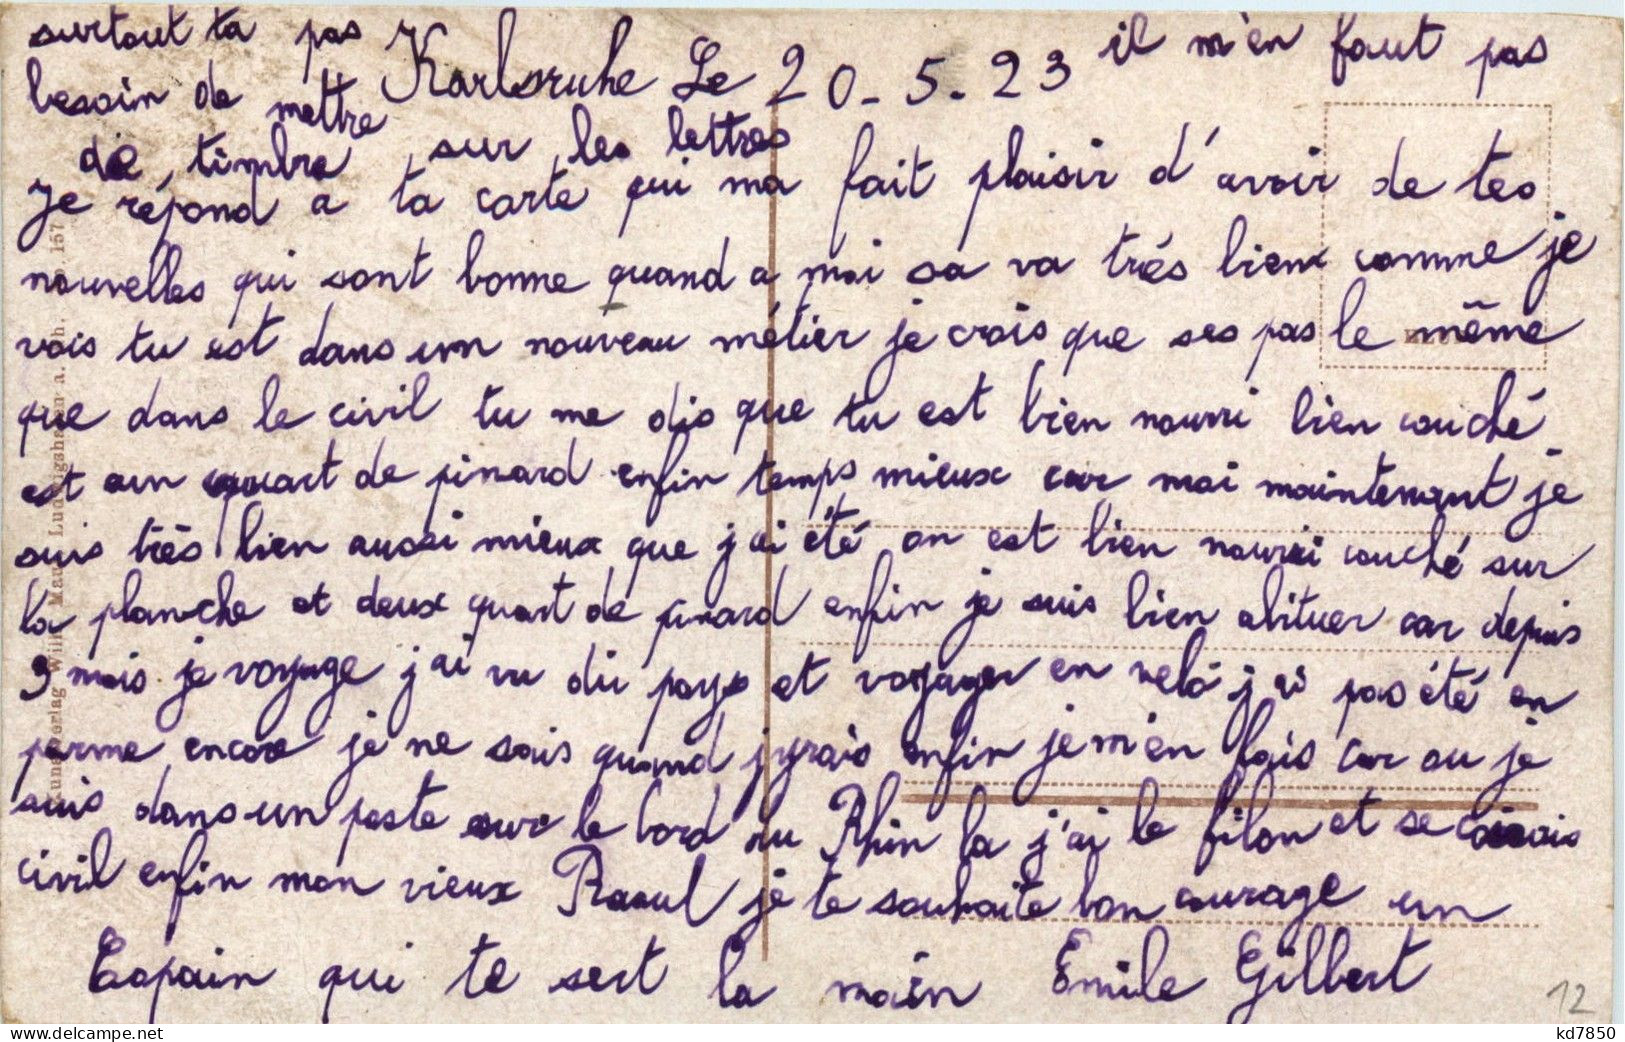 surtout ta pas
besoin de mettre
de timbre sur les lettres
il m'en faut pas
Karlsruhe Le 20-5-23
Je répond a ta carte qui ma fait plaisir d'avoir de tes
nouvelles qui sont bonne quand a moi sa va trés bien comme je
vois tu est dans un nouveau métier je crois que ses pas le même
que dans le civil tu me dis que tu est bien nourri bien couché
est un quart de pinard enfin temps mieux car moi maintenant je
suis très bien aussi mieux que j'ai été on est bien nourri couché sur
la planche et deux quart de pinard enfin je suis bien abituer car depuis
9 mois je voyage j'ai vu du pays et voyager en velo j'ai pas été en
perme encore je ne sais quand jyrais enfin je m'en fais car ou je
suis dans un poste sur le bord du Rhin la j'ai le filon et se
civil enfin mon vieux Raoul je te souhaite bon courage un
Copain qui te sert la main Emile Gilbert
12
kd7850